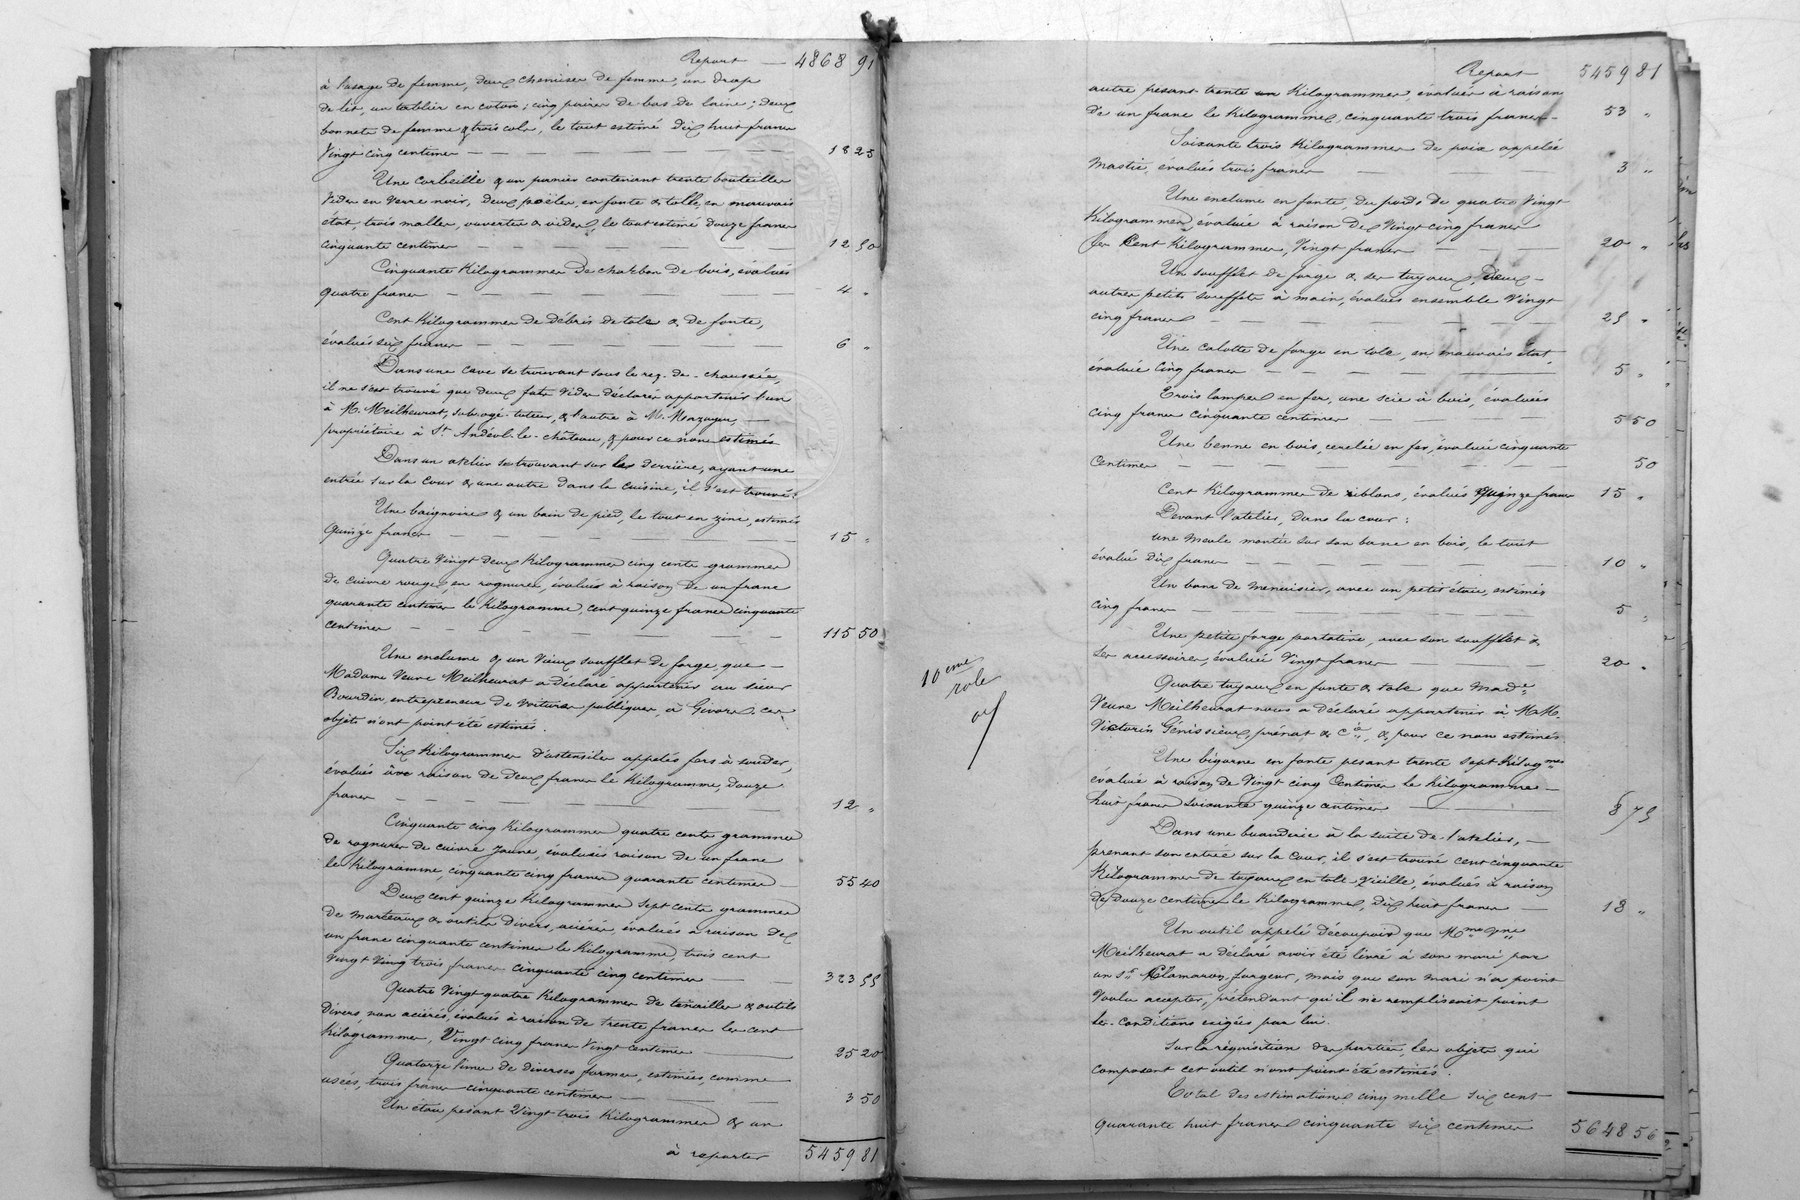 Report — 4868 91
à l'usage de femme, deux chemises de femme, un drap
de lit, un tablier en coton; cinq paires de bas de laine; deux
bonnets de femme & trois cols, le tout estimé dix huit francs
Vingt cinq centimes — 18 25
Une corbeille & un panier contenant trente bouteilles
Vides en verre noir, deux poëles, en fonte & tolle, en mauvais
état, trois malles, ouvertes & vides, le tout estimé douze francs
cinquante centimes — 12 50
Cinquante Kilogrammes de charbon de bois, évalués
quatre francs — 4 "
Cent Kilogrammes de débris de tole & de fonte,
évalués six francs — 6 "
Dans une cave se trouvant sous le rez-de-chaussée,
il ne s'est trouvé que deux futs vides déclarés appartenir l'un
à M. Meilheurat, subrogé-tuteur, & l'autre à M. Mazuyer, —
propriétaire à St. Andéol-le-château, & pour ce non estimés
Dans un atelier se trouvant sur les derrière, ayant une
entrée sur la cour & une autre dans la cuisine, il s'est trouvé:
Une baignoire & un bain de pied, le tout en zinc, estimés
quinze francs — 15 "
Quatre Vingt deux Kilogrammes cinq cents grammes
de cuivre rouge, en rognures, évalués à raison de un franc
quarante centimes le Kilogramme, cent quinze francs cinquante
centimes — 115 50
Une enclume & un vieux soufflet de forge, que —
Madame Veuve Meilheurat a déclaré appartenir au sieur
Bourdin, entrepreneur de voitures publiques, à Givors. ces
objets n'ont point été estimés.
Six Kilogrammes d'ustensiles appelés fers à souder,
évalués à raison de deux francs le Kilogramme, douze
francs — 12 "
Cinquante cinq Kilogrammes quatre cents grammes
de rognures de cuivre jaune, évalués raison de un franc
le Kilogramme, cinquante cinq francs quarante centimes — 55 40
Deux cent quinze Kilogrammes sept cents grammes
de marteaux & outils divers, aciérés, évalués à raison de
un franc cinquante centimes le Kilogramme, trois cent
vingt trois francs cinquante cinq centimes — 323 55
Quatre Vingt quatre Kilogrammes de tenailles & outils
divers, non aciérés, évalués à raison de trente francs les cent
Kilogrammes, Vingt cinq francs vingt centimes — 25 20
Quatorze limes de diverses formes, estimées, comme
usées, trois francs cinquante centimes — 3 50
Un étau pesant Vingt-trois Kilogrammes & un
à reporter 5459 81
10eme
role
Report 5459 81
autre pesant trente un Kilogrammes, évalués à raison
de un franc le Kilogramme, cinquante trois francs — 53 "
Soixante trois Kilogrammes de poix appelée
mastic, évalués trois francs — 3 "
Une enclume en fonte, du poids de quatre Vingt
Kilogrammes, évaluée à raison de Vingt cinq francs
les Cent Kilogrammes, Vingt francs — 20 "
Un soufflet de forge & ses tuyaux, deux —
autres petits soufflets à main, évalués ensemble Vingt
cinq francs — 25 "
Une calotte de forge en tole, en mauvais état,
évaluée cinq francs — 5 "
Trois lampes en fer, une scie à bois, évaluées
cinq francs cinquante centimes — 5 50
Une benne en bois, cerclée en fer, évaluée cinquante
centimes — 50
Cent Kilogrammes de riblons, évalués quinze francs 15 "
Devant l'atelier, dans la cour:
une meule montée sur son banc en bois, le tout
évalué dix francs — 10 "
Un banc de menuisier, avec un petit étau, estimés
cinq francs — 5 "
Une petite forge portative, avec son soufflet &
ses accessoires, évaluée Vingt francs — 20 "
Quatre tuyaux en fonte & tole que Made
Veuve Meilheurat nous a déclaré appartenir à M.M.
Victorin Génissieux, prénat & Cie, & pour ce non estimés.
Une bigorne en fonte pesant trente sept Kilogmes
évaluée à raison de Vingt cinq centimes le Kilogramme —
huit francs soixante quinze centimes — 8 75
Dans une buanderie à la suite de l'atelier, —
prenant son entrée sur la cour, il s'est trouvé cent cinquante
Kilogrammes de tuyaux en tole vieille, évalués à raison
de douze centimes le Kilogramme, dix huit francs — 18 "
Un outil appelé découpoir que Mme Vve
Meilheurat a déclaré avoir été livré à son mari par
un sr. Clamaron, forgeur, mais que son mari n'a point
voulu accepter, prétendant qu'il ne remplissait point
les conditions exigées par lui.
Sur la réquisition des parties, les objets qui
composent cet outil n'ont point été estimés.
Total des estimations cinq mille six cent
quarante huit francs cinquante six centimes 5648 56